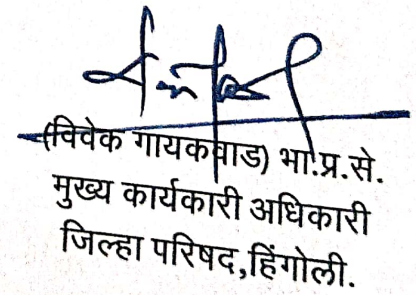 (विवेक गायकवाड) भा.प्र.से.
मुख्य कार्यकारी अधिकारी
जिल्हा परिषद,हिंगोली.